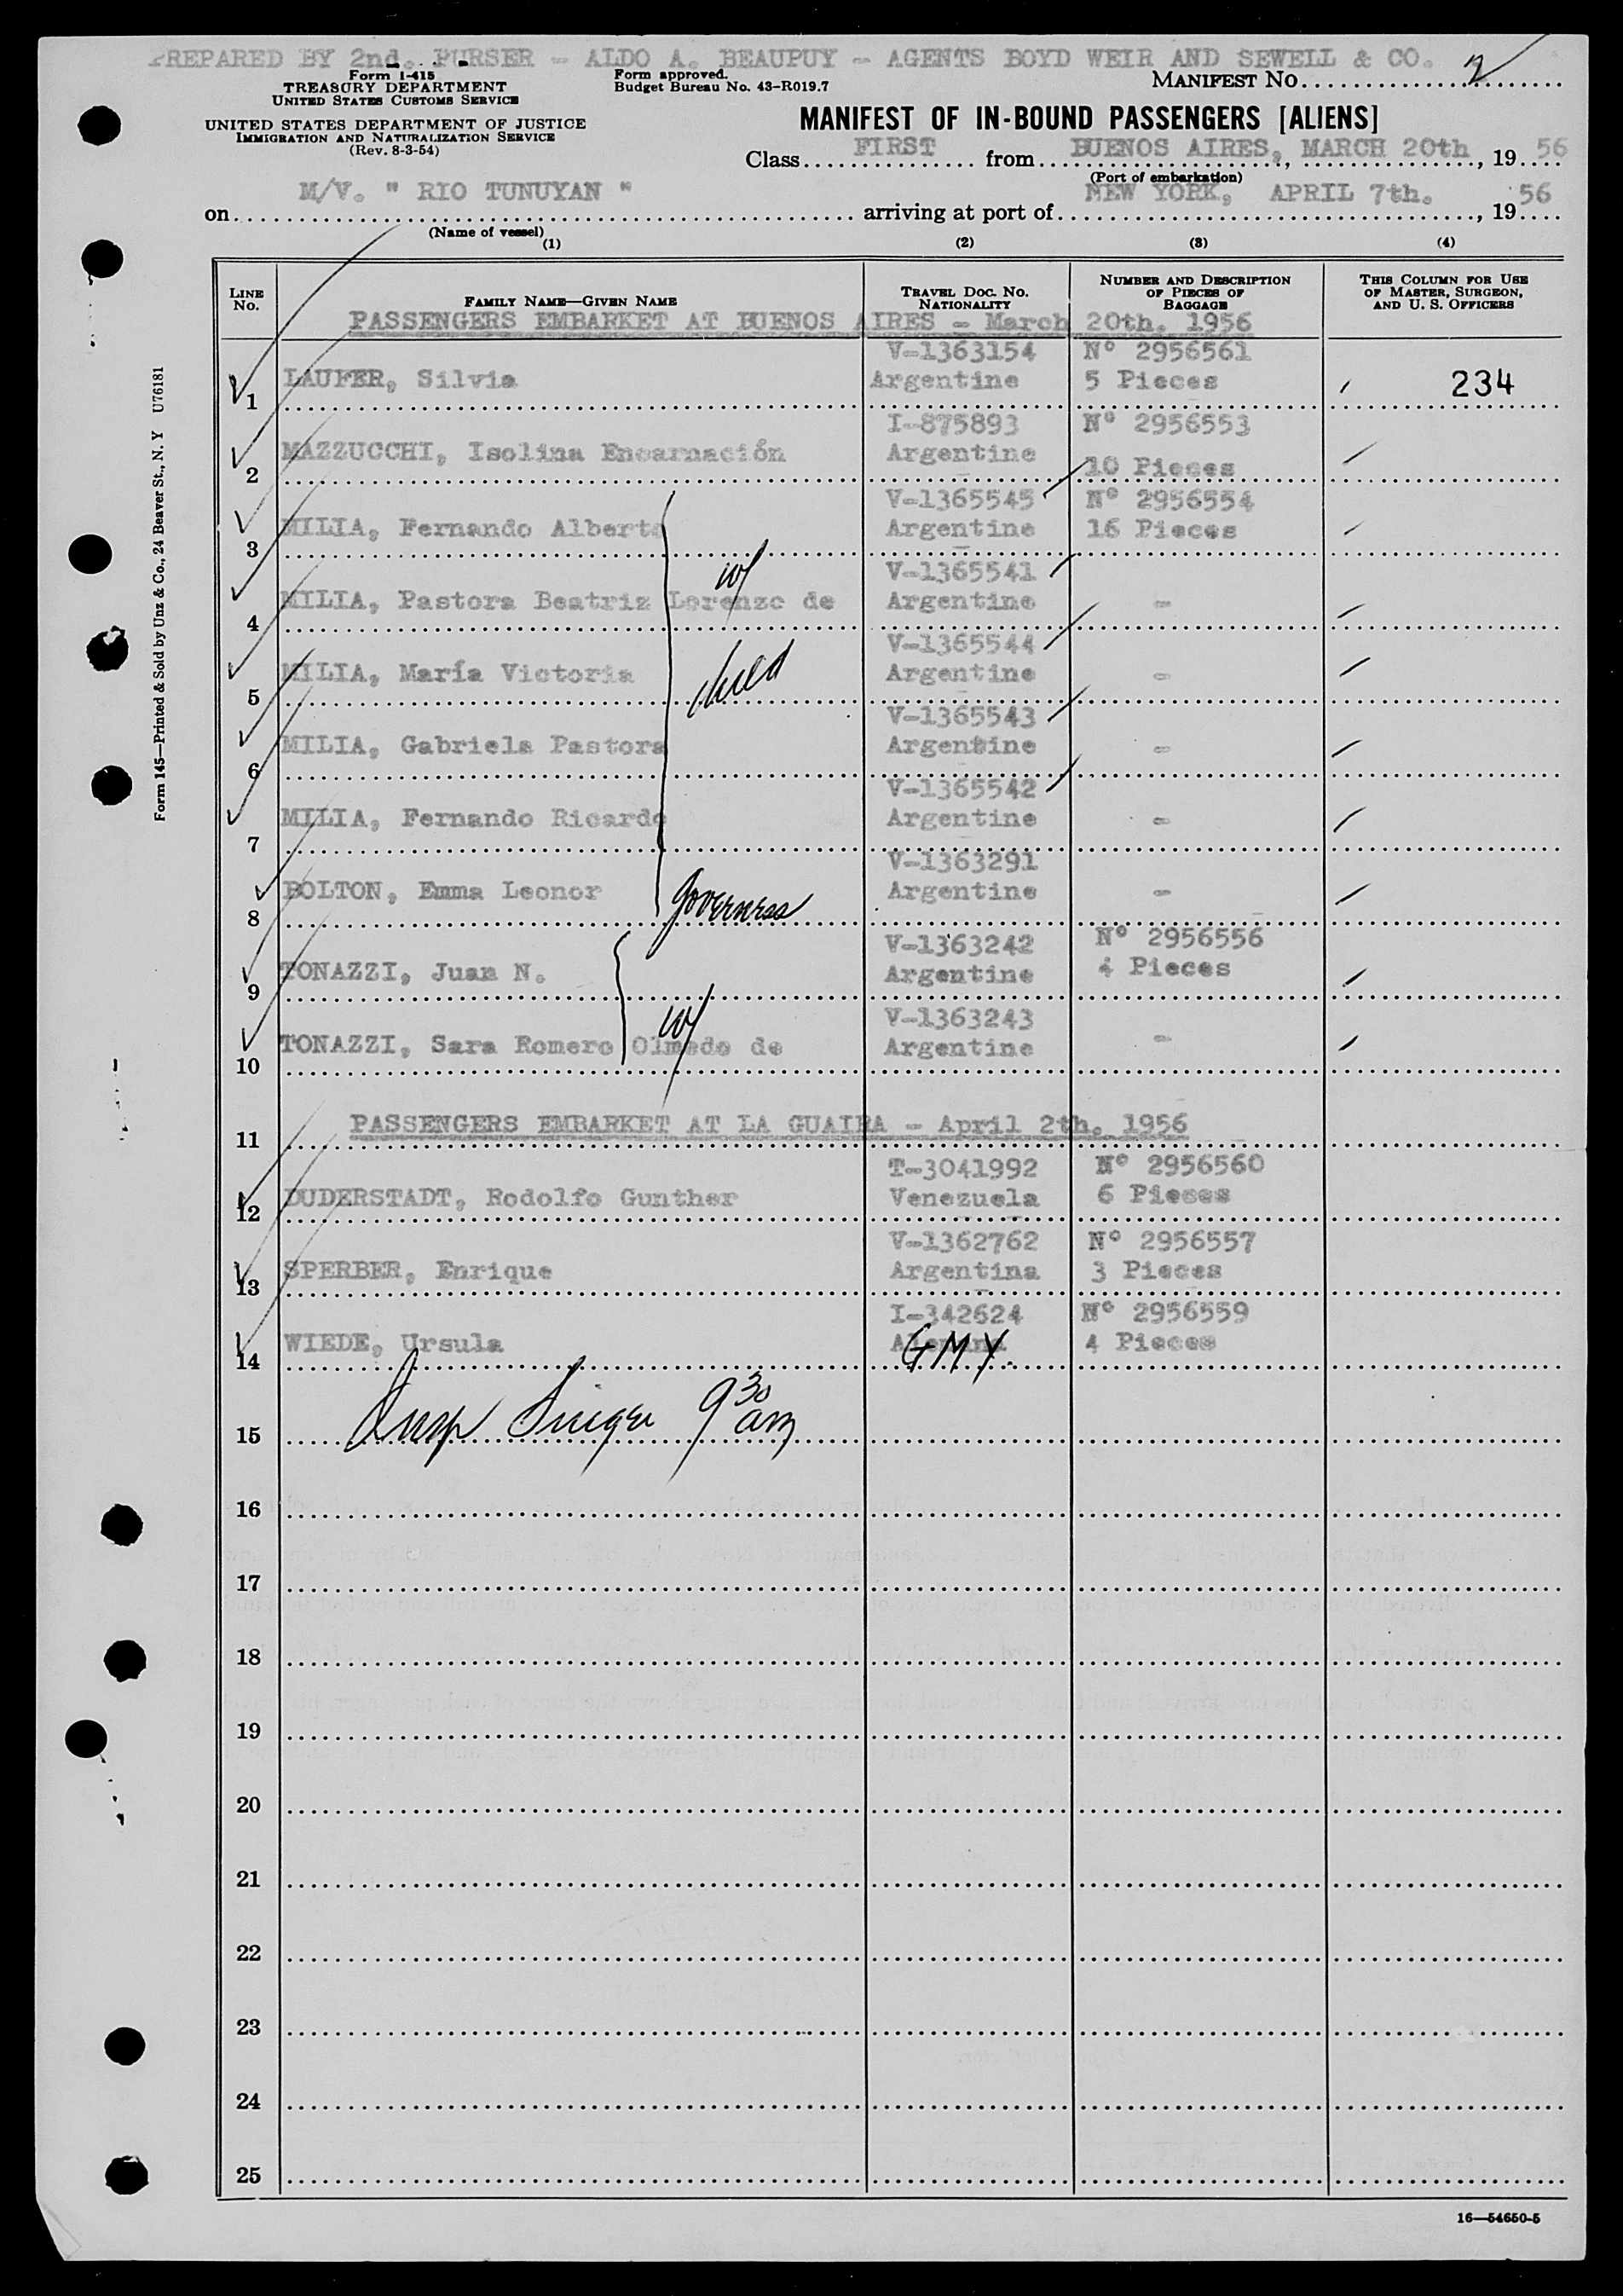 PREPARED BY 2nd. PURSER - ALDO A. BEAUPUY - AGENTS BOYD WEIR AND SEWELL & CO.
Form I-415
TREASURY DEPARTMENT
UNITED STATES CUSTOMS SERVICE
UNITED STATES DEPARTMENT OF JUSTICE
IMMIGRATION AND NATURALIZATION SERVICE
(Rev. 8-3-54)
Form approved.
Budget Bureau No. 43-R019.7
MANIFEST NO. 2
MANIFEST OF IN-BOUND PASSENGERS [ALIENS]
Class FIRST from BUENOS AIRES, MARCH 20th, 1956
(Port of embarkation)
on M/V. " RIO TUNUYAN " arriving at port of NEW YORK, APRIL 7th., 1956
(Name of vessel)
(1) (2) (3) (4)
LINE NO. FAMILY NAME—GIVEN NAME TRAVEL DOC. NO. NATIONALITY NUMBER AND DESCRIPTION OF PIECES OF BAGGAGE THIS COLUMN FOR USE OF MASTER, SURGEON, AND U. S. OFFICERS
PASSENGERS EMBARKET AT BUENOS AIRES - March 20th. 1956
V-1363154 Nº 2956561
1 LAUFER, Silvia Argentine 5 Pieces 234
I-875893 Nº 2956553
2 MAZZUCCHI, Isolina Encarnación Argentine 10 Pieces
V-1365545 Nº 2956554
3 MILIA, Fernando Alberto Argentine 16 Pieces
w/
V-1365541
4 MILIA, Pastora Beatriz Lorenzo de Argentine -
V-1365544
5 MILIA, María Victoria Argentine -
child
V-1365543
6 MILIA, Gabriela Pastora Argentine -
V-1365542
7 MILIA, Fernando Ricardo Argentine -
V-1363291
8 BOLTON, Emma Leonor governess Argentine -
V-1363242 Nº 2956556
9 TONAZZI, Juan N. Argentine 4 Pieces
w/
V-1363243
10 TONAZZI, Sara Romero Olmedo de Argentine -
11 PASSENGERS EMBARKET AT LA GUAIRA - April 2th. 1956
T-3041992 Nº 2956560
12 DUDERSTADT, Rodolfo Gunther Venezuela 6 Pieces
V-1362762 Nº 2956557
13 SPERBER, Enrique Argentina 3 Pieces
I-342624 Nº 2956559
14 WIEDE, Ursula Alemana GMY. 4 Pieces
15 Insp Singer 9 30 am
16
17
18
19
20
21
22
23
24
25
16—54650-5
Form 145—Printed & Sold by Unz & Co., 24 Beaver St., N. Y U76181